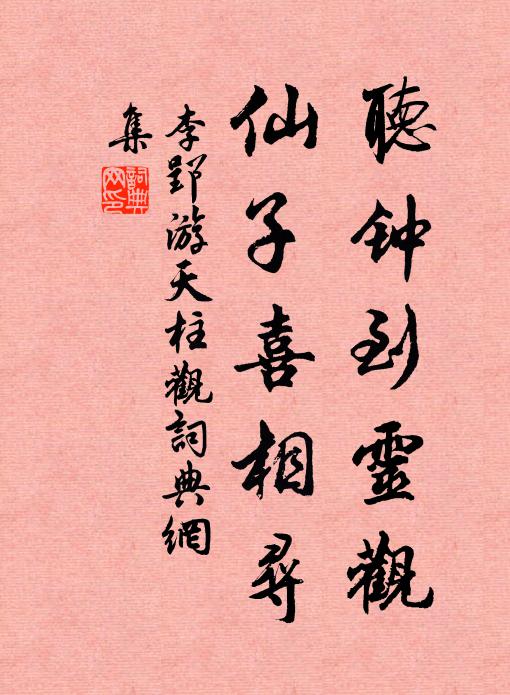 聽钟到靈觀
仙子喜相尋
李郢游天柱觀詞典網
集
詞典网印